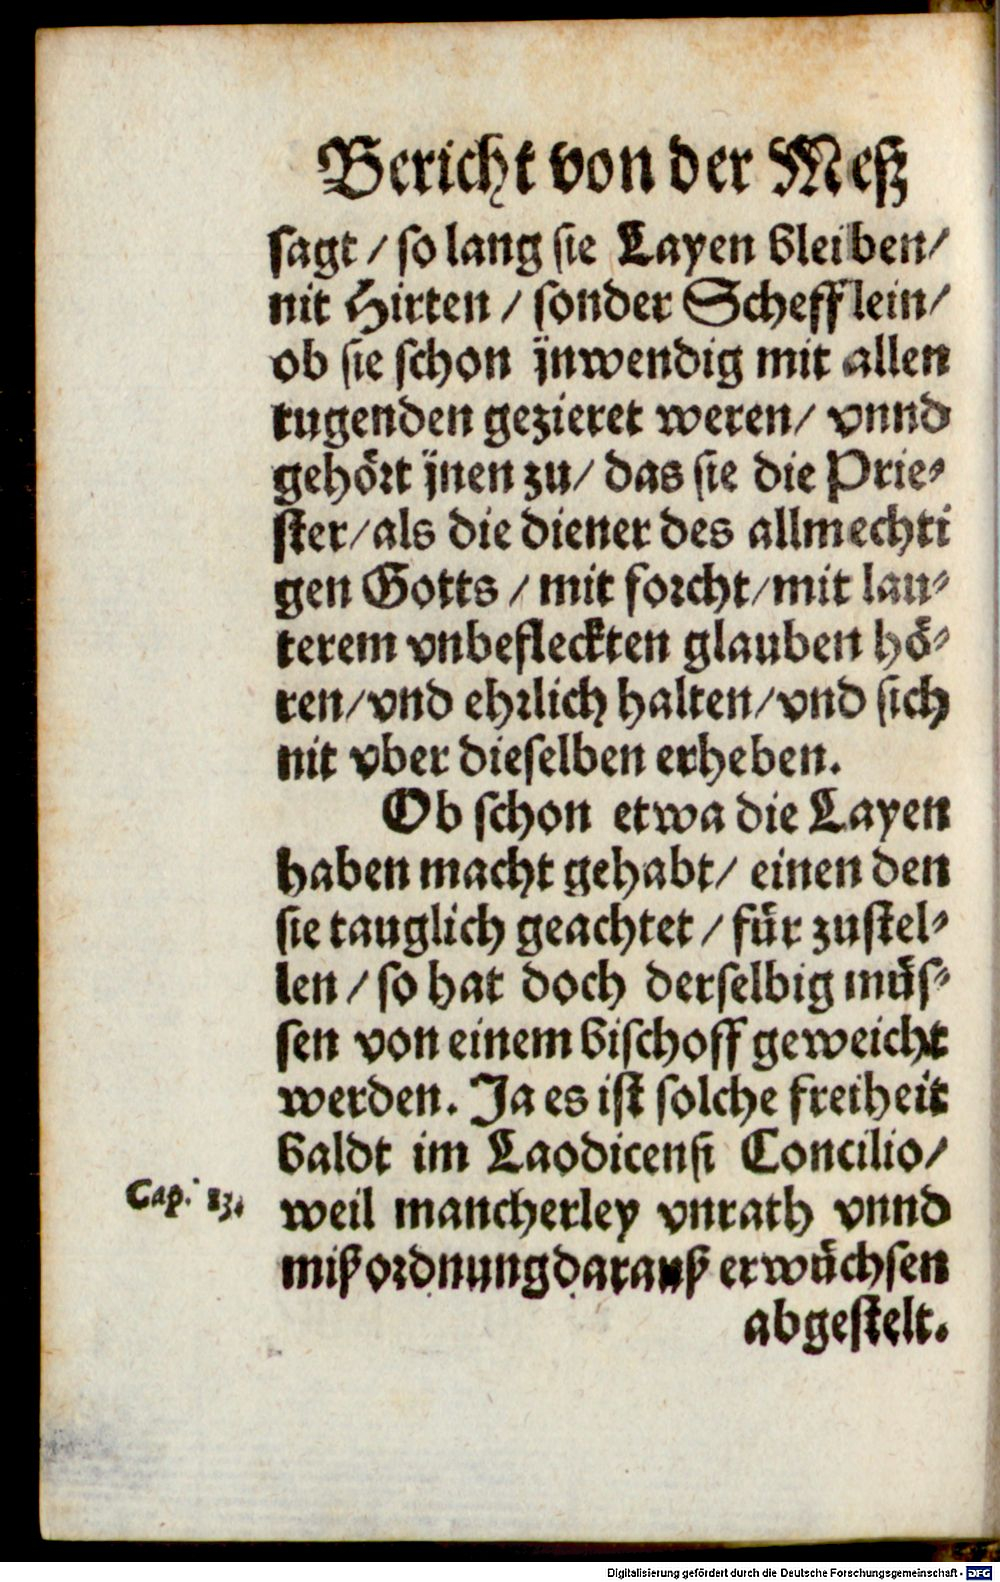 Bericht von der Meß
sagt / so lang sie Layen bleiben/
nit Hirten / sonder Schefflein/
ob sie schon jnwendig mit allen
tugenden gezieret weren/ vnnd
gehört jnen zu/ das sie die Prie-
ster/als die diener des allmechti
gen Gotts / mit forcht/mit lau-
terem vnbefleckten glauben hö-
ren/vnd ehrlich halten/vnd sich
nit vber dieselben erheben.
Ob schon etwa die Layen
haben macht gehabt/ einen den
sie tauglich geachtet / für zustel-
len / so hat doch derselbig müs-
sen von einem bischoff geweicht
werden. Ja es ist solche freiheit
baldt im Laodicensi Concilio/
Cap. 13. weil mancherley vnrath vnnd
mißordnung darauß erwüchsen
abgestelt.
Digitalisierung gefördert durch die Deutsche Forschungsgemeinschaft - DFG